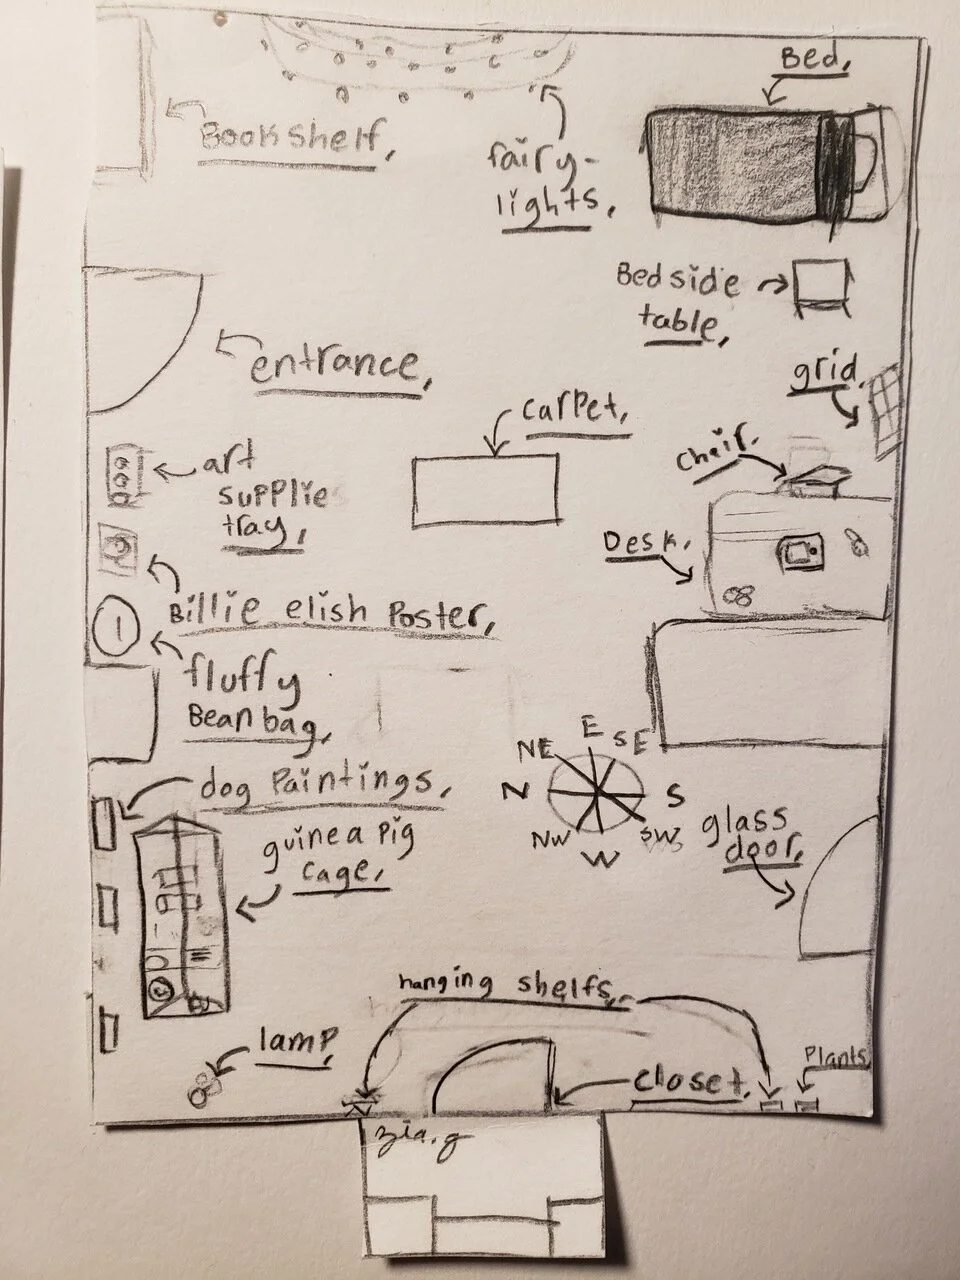 Bed.
Bookshelf,
fairy-
lights,
Bedside
table,
entrance,
grid.
carpet,
chair.
art
supplies
tray,
Desk.
Billie elish Poster,
fluffy
Bean bag,
E
NE
SE
N
S
NW
SW
W
dog Paintings,
glass
door,
guinea pig
cage,
hanging shelfs,
lamp,
Plants
closet.
zia.g